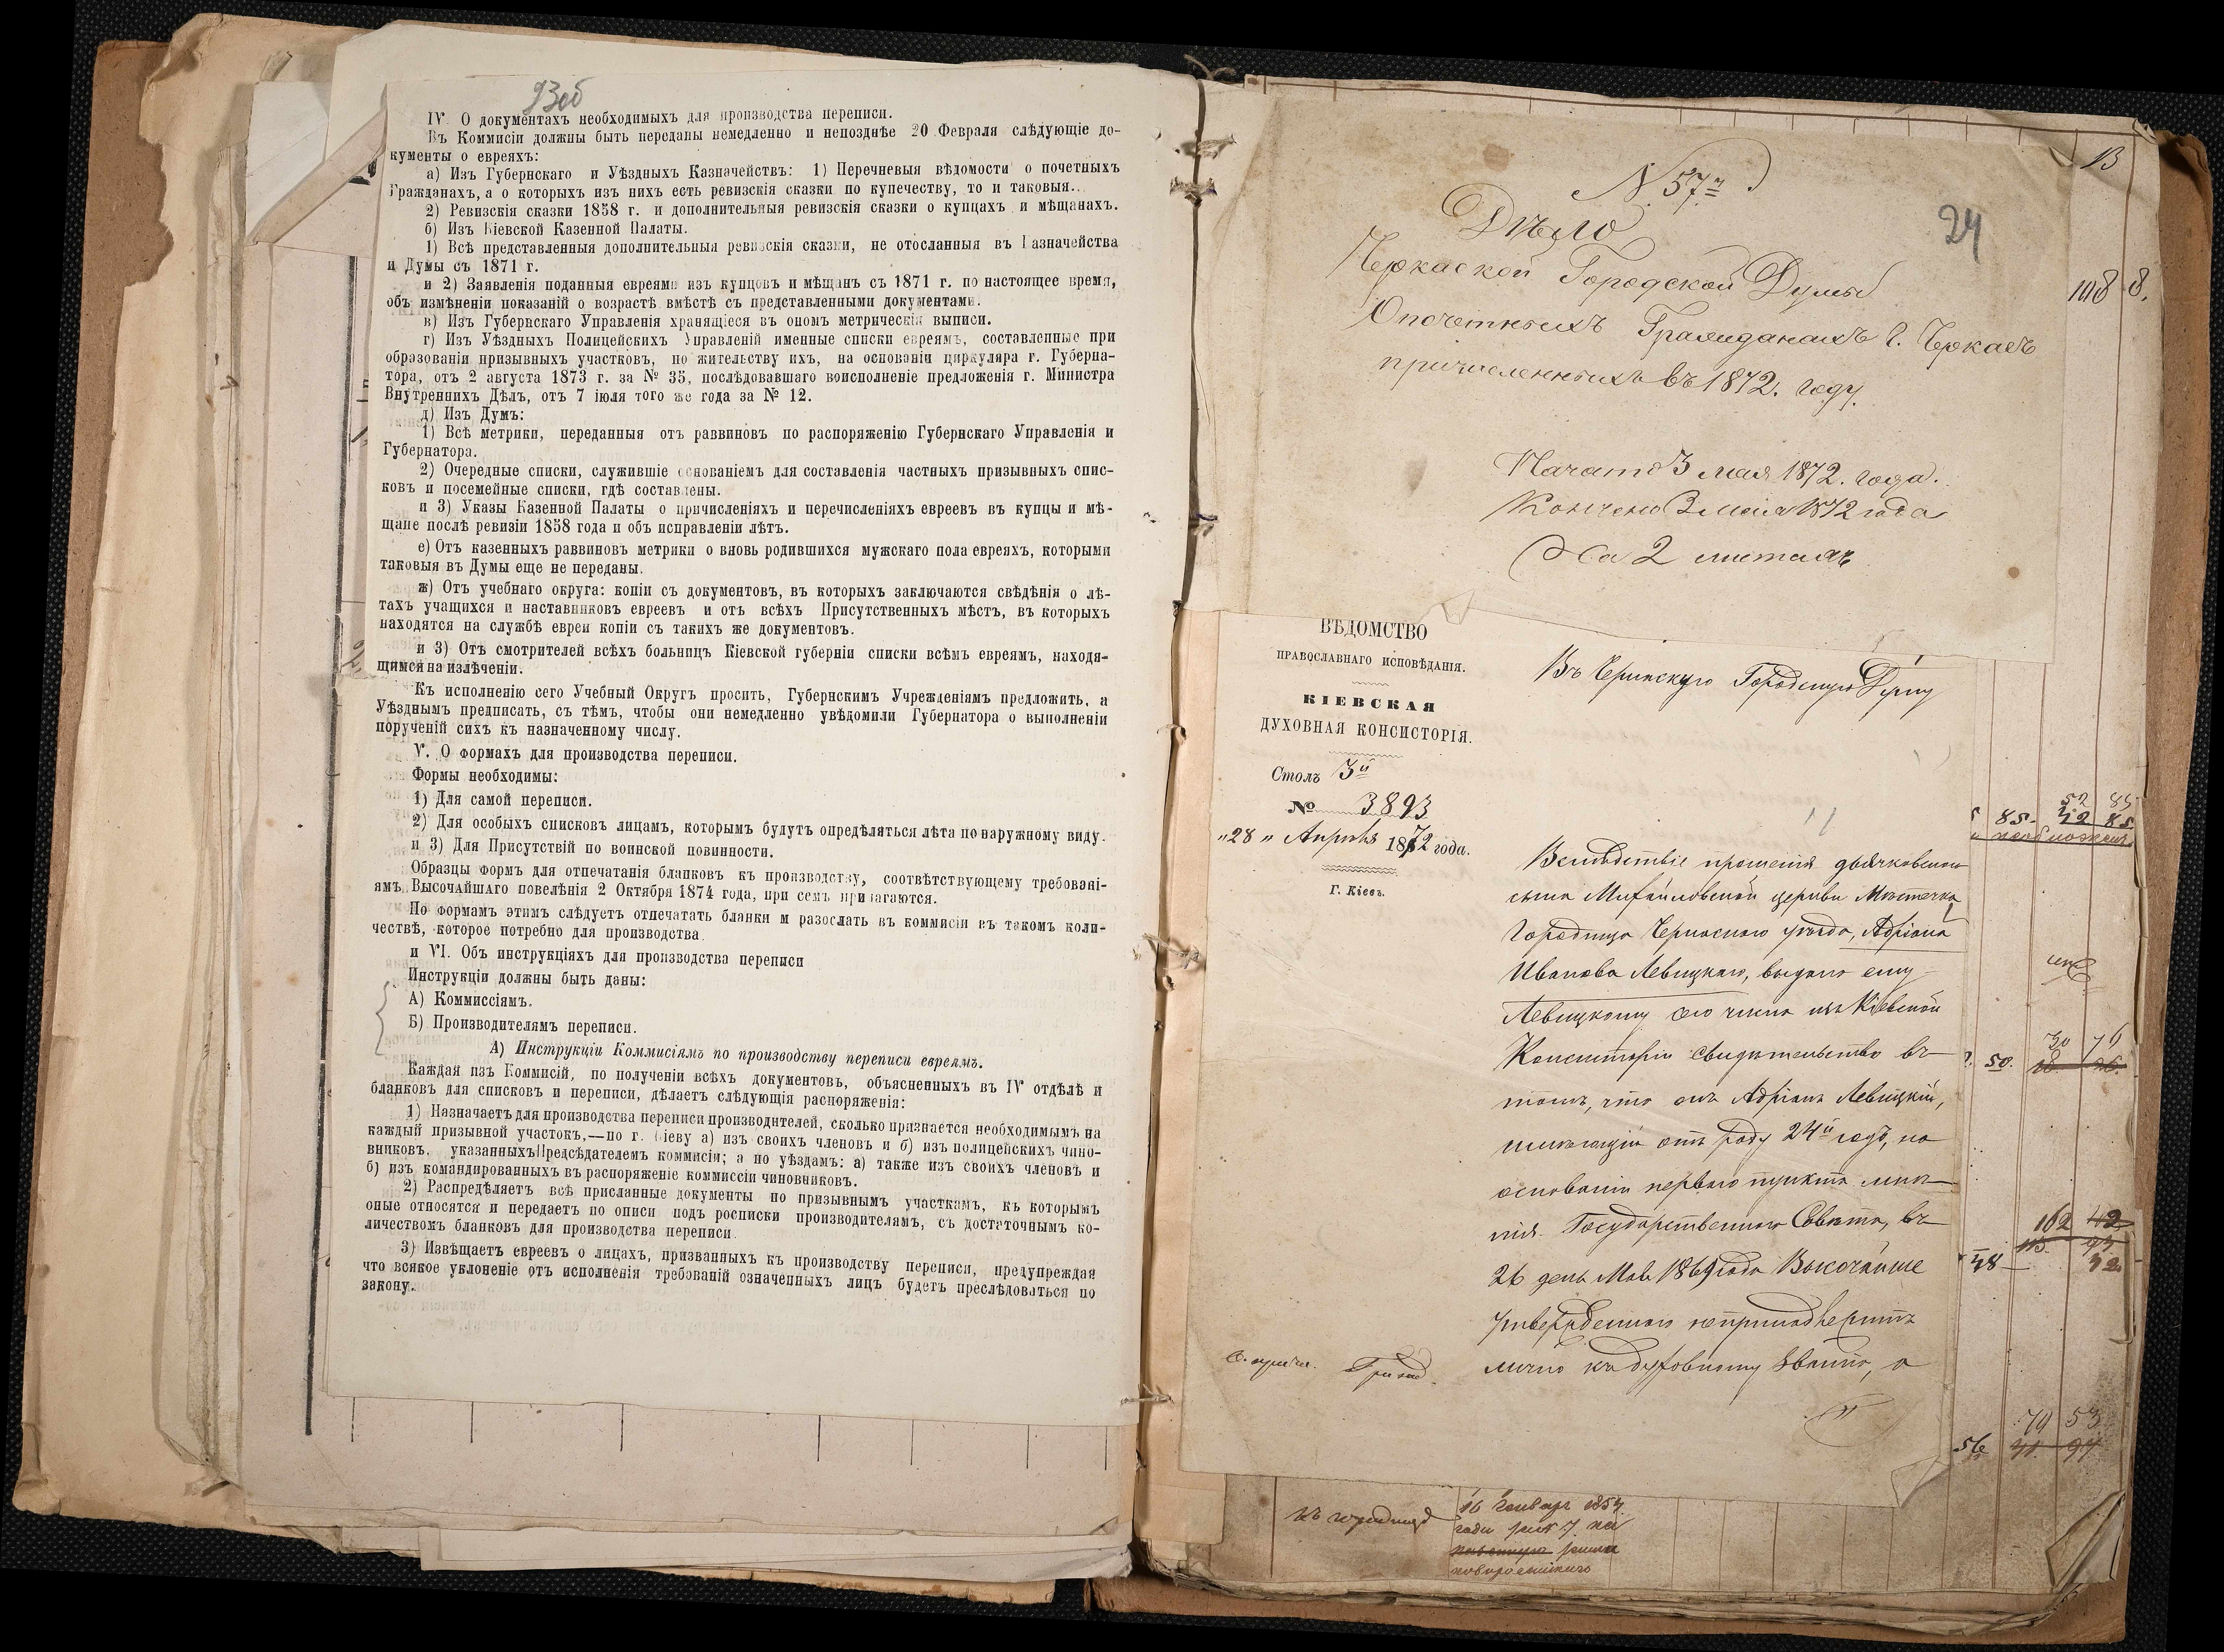 93об
IV. О документахъ необходимыхъ для производства переписи.
Въ Коммисіи должны быть переданы немедленно и непозднѣе 20 Февраля слѣдующіе до-
кументы о евреяхъ:
а) Изъ Губернскаго и Уѣздныхъ Казначействъ: 1) Перечневыя вѣдомости о почетныхъ
Гражданахъ, а о которыхъ изъ нихъ есть ревизскія сказки по купечеству, то и таковыя.
2) Ревизскія сказки 1858 г. и дополнительныя ревизскія сказки о купцахъ и мѣщанахъ.
б) Изъ Кіевской Казенной Палаты.
1) Всѣ представленныя дополнительныя ревизскія сказки, не отосланныя въ Казначейства
и Думы съ 1871 г.
и 2) Заявленія поданныя евреями изъ купцовъ и мѣщанъ съ 1871 г. по настоящее время,
объ измѣненіи показаній о возрастѣ вмѣстѣ съ представленными документами.
в) Изъ Губернскаго Управленія хранящіеся въ ономъ метрическія выписи.
г) Изъ Уѣздныхъ Полицейскихъ Управленій именные списки евреямъ, составленные при
образованіи призывныхъ участковъ, по жительству ихъ, на основаніи циркуляра г. Губерна-
тора, отъ 2 августа 1873 г. за № 35, послѣдовавшаго воисполненіе предложенія г. Министра
Внутреннихъ Дѣлъ, отъ 7 іюля того же года за № 12.
д) Изъ Думъ:
1) Всѣ метрики, переданныя отъ раввиновъ по распоряженію Губернскаго Управленія и
Губернатора.
2) Очередные списки, служившіе основаніемъ для составленія частныхъ призывныхъ спис-
ковъ и посемейные списки, гдѣ составлены.
и 3) Указы Казенной Палаты о причисленіяхъ и перечисленіяхъ евреевъ въ купцы и мѣ-
щане послѣ ревизіи 1858 года и объ исправленіи лѣтъ.
е) Отъ казенныхъ раввиновъ метрики о вновь родившихся мужскаго пола евреяхъ, которыми
таковыя въ Думы еще не переданы.
ж) Отъ учебнаго округа: копіи съ документовъ, въ которыхъ заключаются свѣдѣнія о лѣ-
тахъ учащихся и наставниковъ евреевъ и отъ всѣхъ Присутственныхъ мѣстъ, въ которыхъ
находятся на службѣ евреи копіи съ такихъ же документовъ.
и 3) Отъ смотрителей всѣхъ больницъ Кіевской губерніи списки всѣмъ евреямъ, находя-
щимся на излѣченіи.
Къ исполненію сего Учебный Округъ просить, Губернскимъ Учрежденіямъ предложить, а
Уѣзднымъ предписать, съ тѣмъ, чтобы они немедленно увѣдомили Губернатора о выполненіи
порученій сихъ къ назначенному числу.
V. О формахъ для производства переписи.
Формы необходимы:
1) Для самой переписи.
2) Для особыхъ списковъ лицамъ, которымъ будутъ опредѣляться лѣта по наружному виду.
и 3) Для Присутствій по воинской повинности.
Образцы формъ для отпечатанія бланковъ къ производству, соотвѣтствующему требовані-
ямъ Высочайшаго повелѣнія 2 Октября 1874 года, при семъ прилагаются.
По формамъ этимъ слѣдуетъ отпечатать бланки м разослать въ коммисіи въ такомъ коли-
чествѣ, которое потребно для производства
и VI. Объ инструкціяхъ для производства переписи
Инструкціи должны быть даны:
А) Коммиссіямъ.
Б) Производителямъ переписи.
А) Инструкціи Коммисіямъ по производству переписи евреямъ.
Каждая изъ Коммисій, по полученіи всѣхъ документовъ, объясненныхъ въ IV отдѣлѣ и
бланковъ для списковъ и переписи, дѣлаетъ слѣдующія распоряженія:
1) Назначаетъ для производства переписи производителей, сколько признается необходимымъ на
каждый призывной участокъ,—по г. Кіеву а) изъ своихъ членовъ и б) изъ полицейскихъ чино-
вниковъ, указанныхъ Предсѣдателемъ коммисіи; а по уѣздамъ: а) также изъ своихъ членовъ и
б) изъ командированныхъ въ распоряженіе коммиссіи чиновниковъ.
2) Распредѣляетъ всѣ присланные документы по призывнымъ участкамъ, къ которымъ
оные относятся и передаетъ по описи подъ росписки производителямъ, съ достаточнымъ ко-
личествомъ бланковъ для производства переписи.
3) Извѣщаетъ евреевъ о лицахъ, призванныхъ къ производству переписи, предупреждая
что всякое уклоненіе отъ исполненія требованій означенныхъ лицъ будетъ преслѣдоваться по
закону.
13
N. 57й
24
Дѣло
Черкаской Городской Думы
О почетныхъ Гражданахъ г. Черкасъ
причисленныхъ въ 1872. году.
108 8.
Начато 3 мая 1872. года.
Кончено 3 мая 1872 года
На 2 листахъ
ВѢДОМСТВО
ПРАВОСЛАВНАГО ИСПОВѢДАНІЯ.
КІЕВСКАЯ
ДУХОВНАЯ КОНСИСТОРІЯ.
Столъ 3й
№ 3893
„28„ Апрѣля 1872 года.
Г. Кіевъ.
Въ Черкаскую Городскую Думу
Вслѣдствіе прошенія дьячковскаго
сына Михайловской церкви Мѣстечка
Городища Черкаскаго уѣзда, Адріана
Иванова Левицкаго, выдано ему
Левицкому сего числа изъ Кіевской
Консисторіи свидѣтельство въ
томъ, что онъ Адріанъ Левицкій,
имѣющій отъ роду 24й годъ, на
основаніи перваго пункта мнѣ-
нія Государственнаго Совѣта, въ
26 день Мая 1869 года Высочайше
утвержденнаго непринадлежитъ
лично къ духовному званію, а
85. 42 85.
52 85
50.
30 76
162 42
48
32
56
70 53
16 Генваря 1854
года